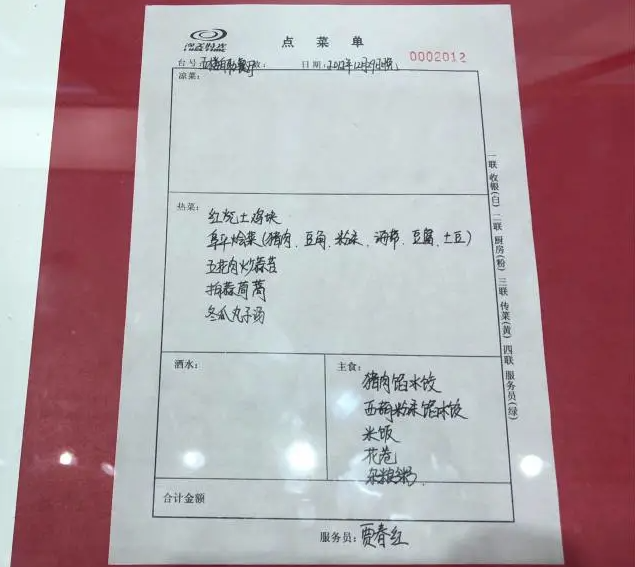 点菜单
0002012
台号: 五楼自助餐厅 日期: 2012年12月29日晚
凉菜:
热菜:
红烧土鸡块
阜平烩菜(猪肉、豆角、粉条、海带、豆腐、土豆)
五花肉炒蒜苔
拍蒜茼蒿
冬瓜丸子汤
酒水:
主食:
猪肉馅水饺
西葫粉条馅水饺
米饭
花卷
杂粮粥.
合计金额
服务员: 贾春红
一联 收银(白) 二联 厨房(粉) 三联 传菜(黄) 四联 服务员(绿)